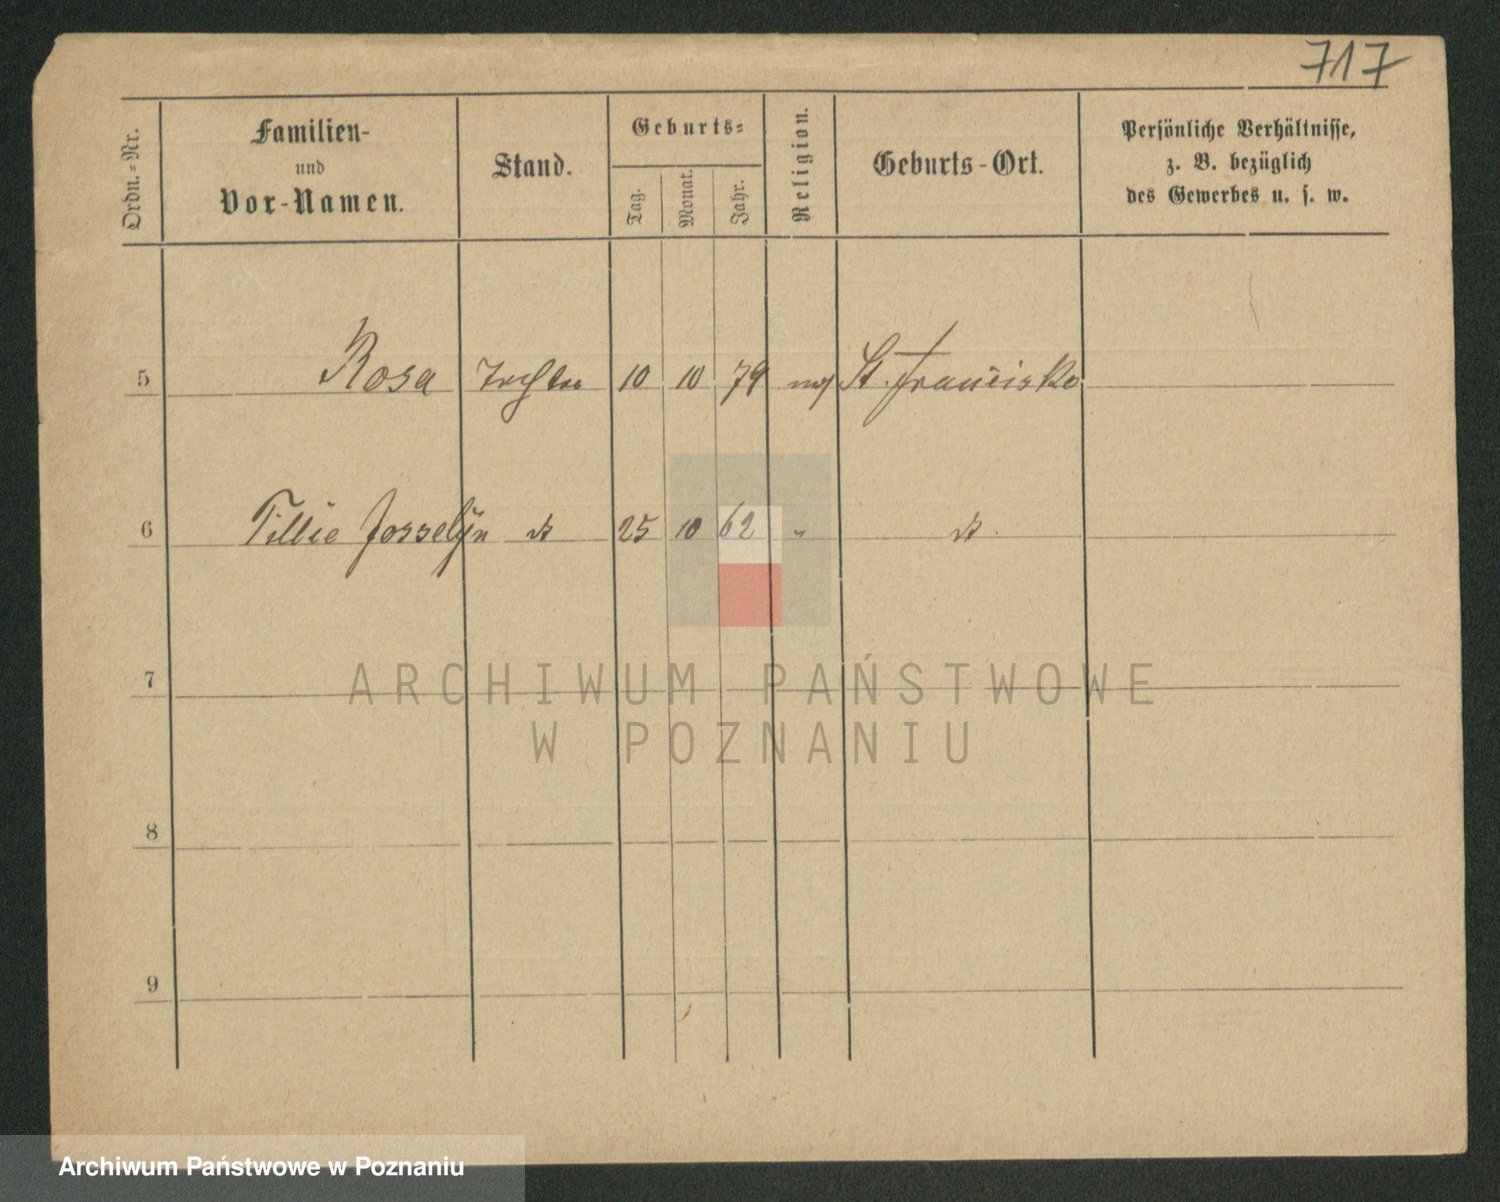 717
Ordn.-Nr.
Familien-
und
Vor-Namen.
Stand.
Geburts-
Tag.
Monat.
Jahr.
Religion.
Geburts-Ort.
Persönliche Verhältnisse,
z. B. bezüglich
des Gewerbes u. s. w.
5 Rosa Tochter 10 10 79 St. Francisko
6 Tillie Josselyn dt 25 10 62 " dt.
7
8
9
ARCHIWUM PAŃSTWOWE
W POZNANIU
Archiwum Państwowe w Poznaniu